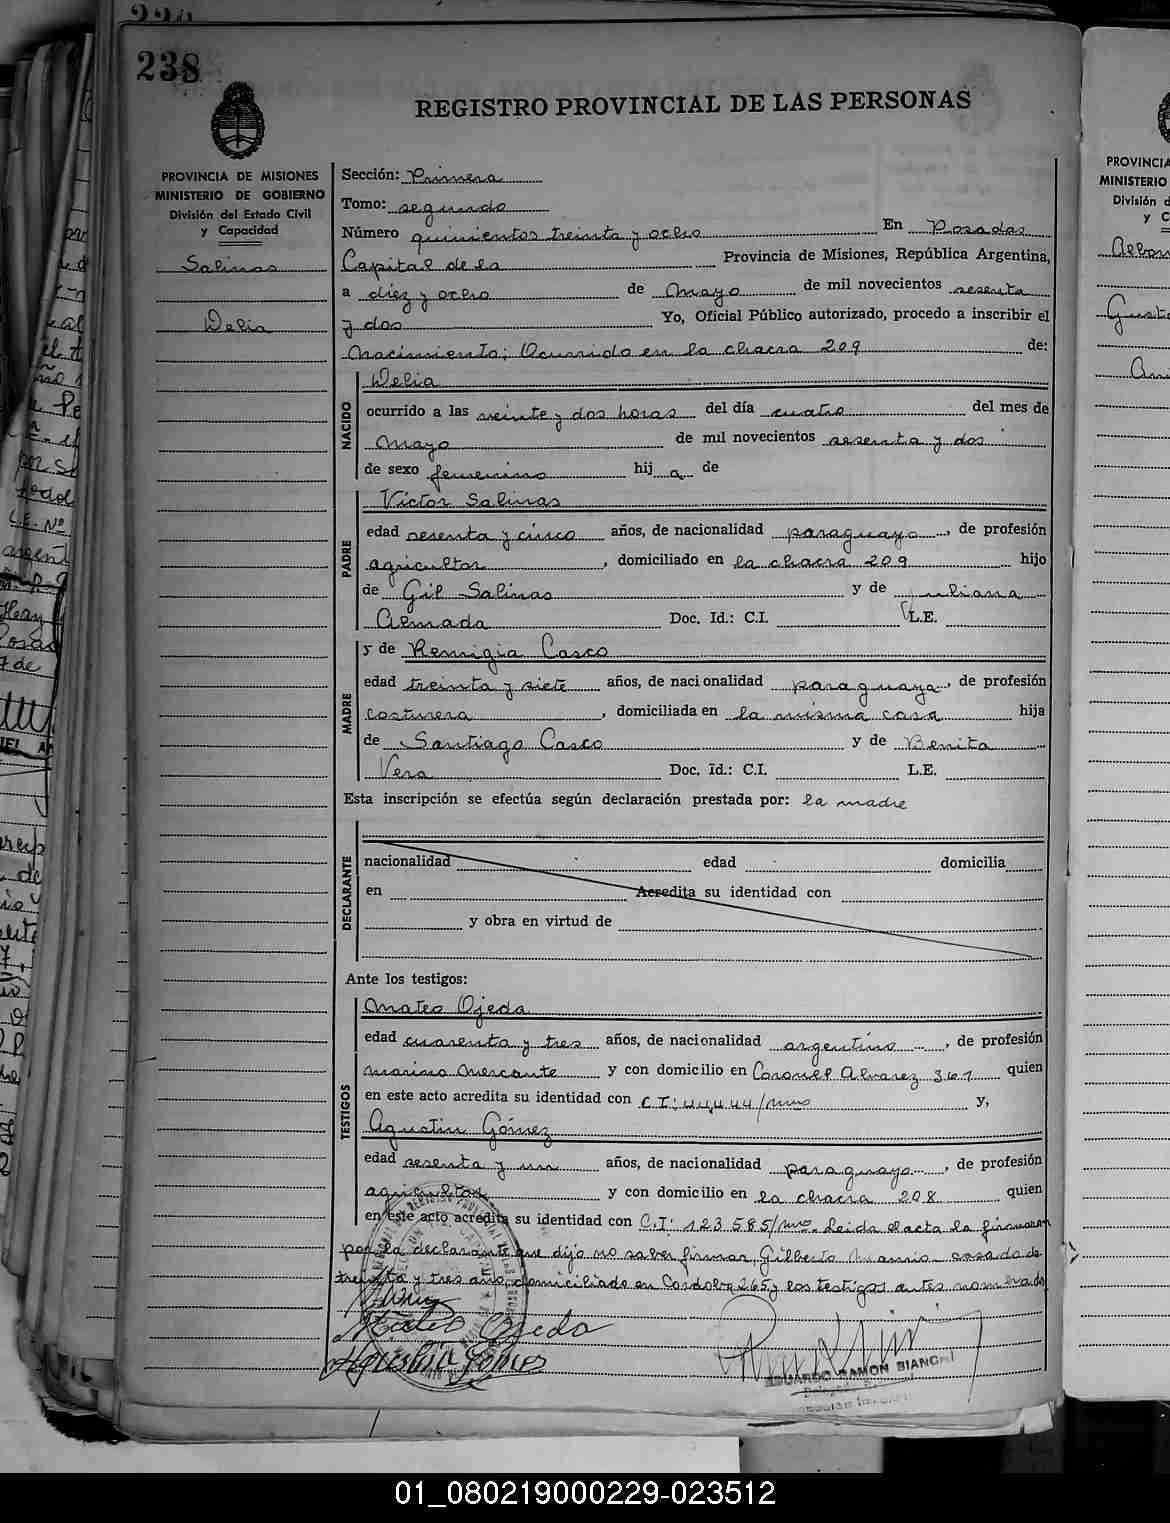 238
REGISTRO PROVINCIAL DE LAS PERSONAS
PROVINCIA DE MISIONES
MINISTERIO DE GOBIERNO
División del Estado Civil
y Capacidad
Salinas
Delia
Sección: Primera
Tomo: segundo
Número quinientos treinta y ocho En Posadas
Capital de la Provincia de Misiones, República Argentina,
a diez y ocho de Mayo de mil novecientos sesenta
y dos Yo, Oficial Público autorizado, procedo a inscribir el
Nacimiento; Ocurrido en la chacra 209 de:
NACIDO
Delia
ocurrido a las veinte y dos horas del día cuatro del mes de
Mayo de mil novecientos sesenta y dos
de sexo femenino hij a de
PADRE
Víctor Salinas
edad sesenta y cinco años, de nacionalidad paraguayo, de profesión
agricultor, domiciliado en la chacra 209 hijo
de Gil Salinas y de Juliana
Almada Doc. Id.: C.I. L.E.
MADRE
y de Remigia Casco
edad treinta y siete años, de nacionalidad paraguaya, de profesión
costurera, domiciliada en la misma casa hija
de Santiago Casco y de Benita
Vera Doc. Id.: C.I. L.E.
Esta inscripción se efectúa según declaración prestada por: la madre
DECLARANTE
nacionalidad edad domicilia
en Acredita su identidad con
y obra en virtud de
Ante los testigos:
TESTIGOS
Mateo Ojeda
edad cuarenta y tres años, de nacionalidad argentino, de profesión
marino mercante y con domicilio en Coronel Alvarez 367 quien
en este acto acredita su identidad con C I: y,
Agustin Gómez
edad sesenta y un años, de nacionalidad paraguayo, de profesión
agricultor y con domicilio en la chacra 208 quien
en este acto acredita su identidad con C.I: 123.585/mnes. Leida el acta la firmaron
por la declarante que dijo no saber firmar, Gilberto casado de
treinta y tres años domiciliado en Cordoba 265 y los testigos antes nombrados
Mateo Ojeda
Agustin Gomes
EDUARDO RAMON BIANCHI
PROVINCIA
MINISTERIO
División d
y C
01_080219000229-023512